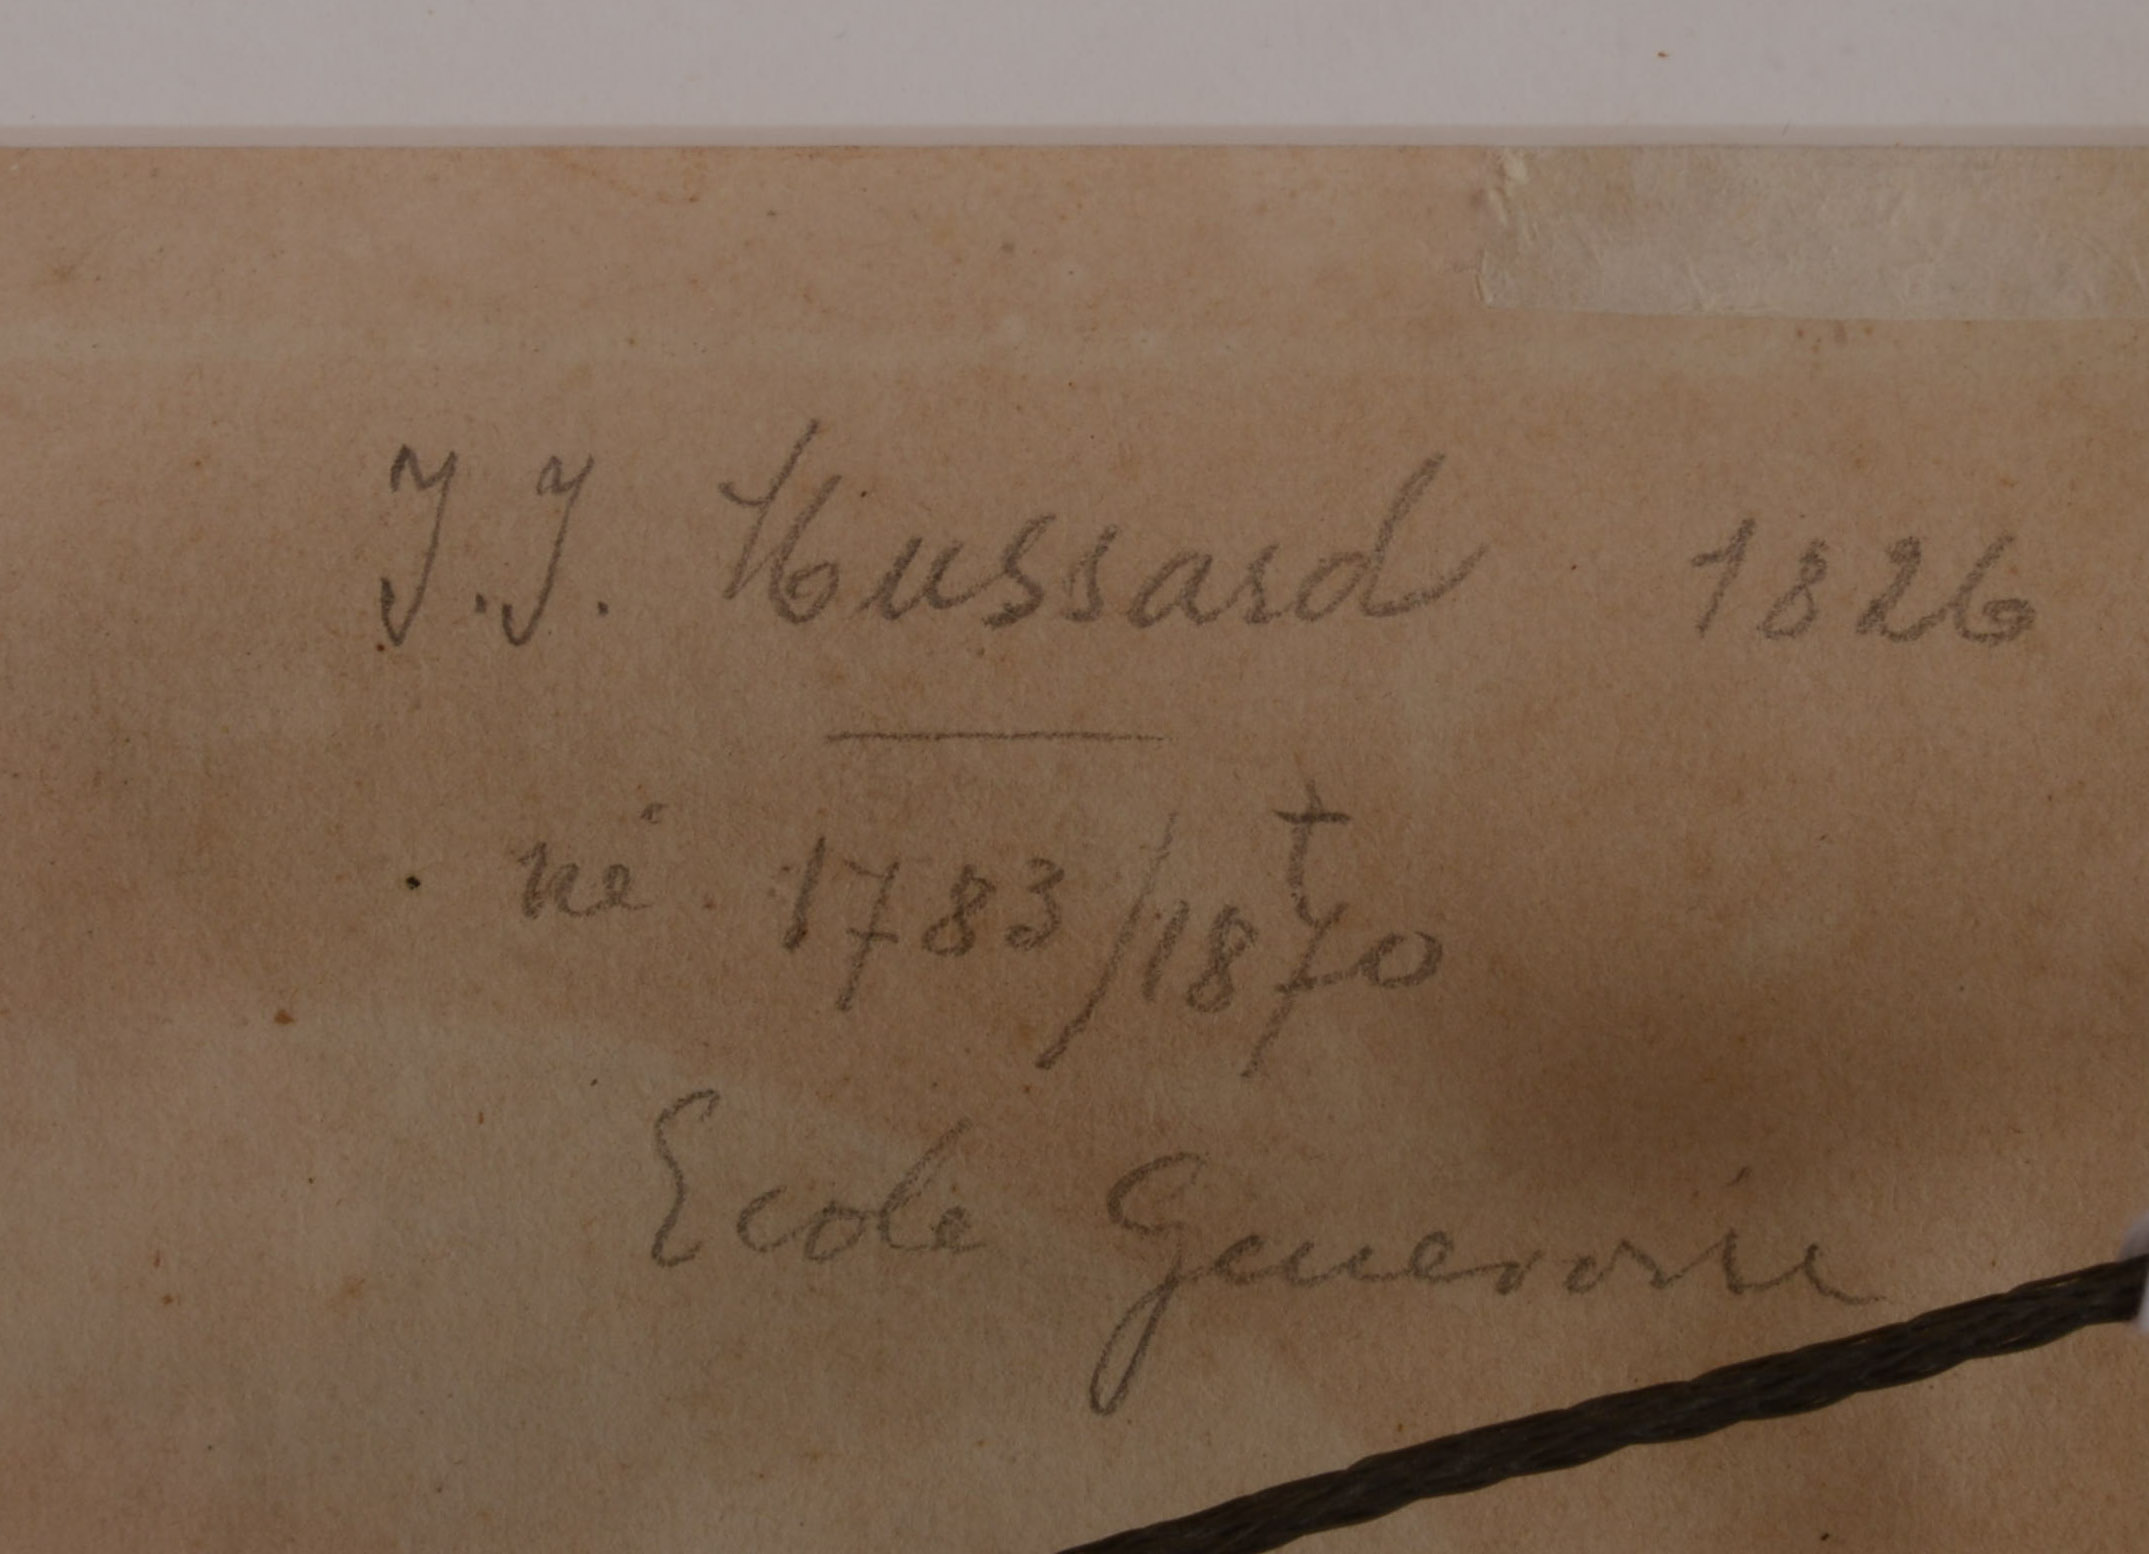 J.J. Hussard 1826
né. 1783/1870 †
Ecole Genevoise